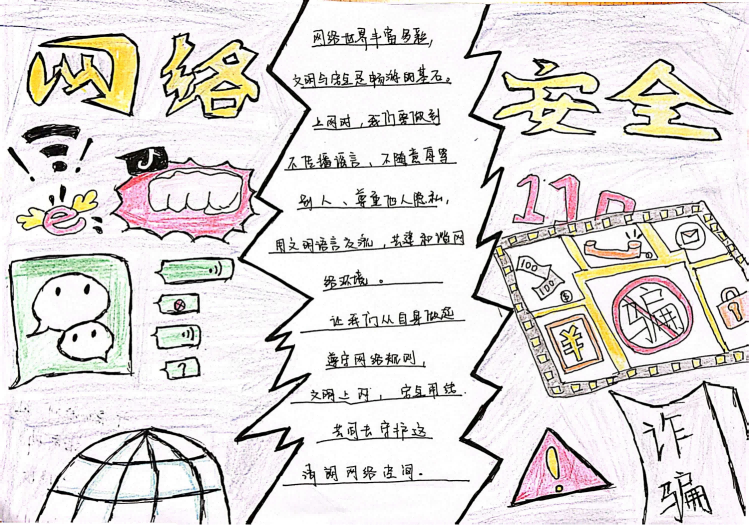 网络
安全
网络世界丰富多彩，
文明与安全是畅游的基石。
上网时，我们要做到
不传播谣言、不随意辱骂
别人、尊重他人隐私，
用文明语言交流，共建和谐网
络环境。
让我们从自身做起
遵守网络规则，
文明上网，安全用网
共同去守护这
清朗网络空间。
e
110
100
100
$
¥
骗
?
!
诈
骗